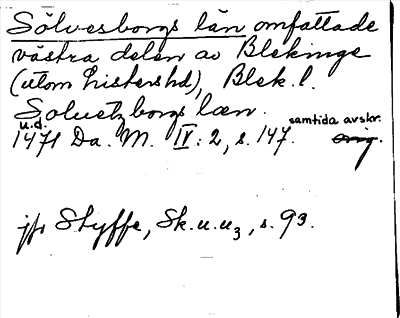 Sölvesborgs län omfattade
västra delen av Blekinge
(utom Listers hd), Blek. l.
Soluetzborgs læn.
u.d. samtida avskr.
1471 Da. M. IV: 2, s. 147. orig.
jfr Styffe, Sk.u.u3, s. 93.